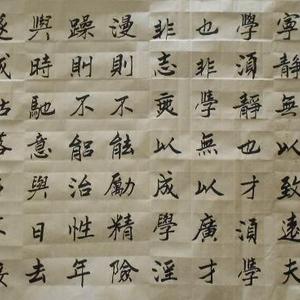 寧靜無以致遠夫
學湏靜也才湏學
也非學無以廣才
非志無以成學淫
漫則不能勵精險
躁則不能治性年
與時馳意與日去
遂成枯落多不接